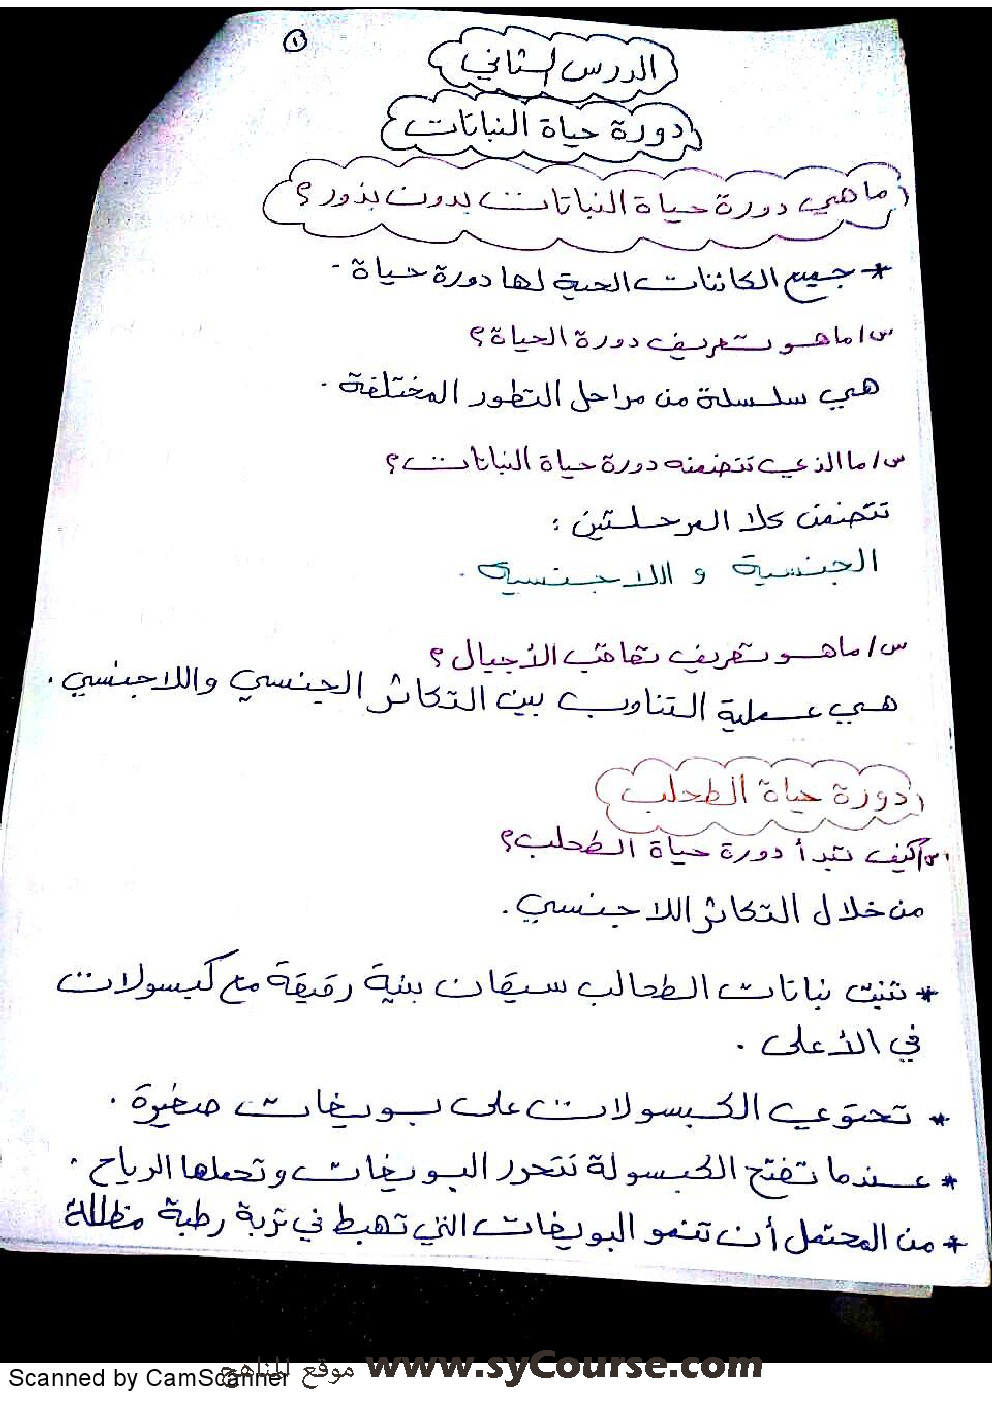 ١
الدرس الثاني
دورة حياة النباتات
ما هي دورة حياة النباتات بدون بذور ؟
* جميع الكائنات الحية لها دورة حياة .
س/ ما هو تعريف دورة الحياة ؟
هي سلسلة من مراحل التطور المختلفة .
س/ ما الذي تتضمنه دورة حياة النباتات ؟
تتضمن كلا المرحلتين :
الجنسية و اللاجنسية .
س/ ما هو تعريف تعاقب الأجيال ؟
هي عملية التناوب بين التكاثر الجنسي واللاجنسي .
دورة حياة الطحلب
س/ كيف تبدأ دورة حياة الطحلب ؟
من خلال التكاثر اللاجنسي .
* تنبت نباتات الطحالب سيقان بنية رقيقة مع كبسولات
في الأعلى .
* تحتوي الكبسولات على بويغات صغيرة .
* عندما تفتح الكبسولة تتحرر البويغات وتحملها الرياح .
* من المحتمل أن تنمو البويغات التي تهبط في تربة رطبة مظللة
موقع المناهج www.syCourse.com
Scanned by CamScanner